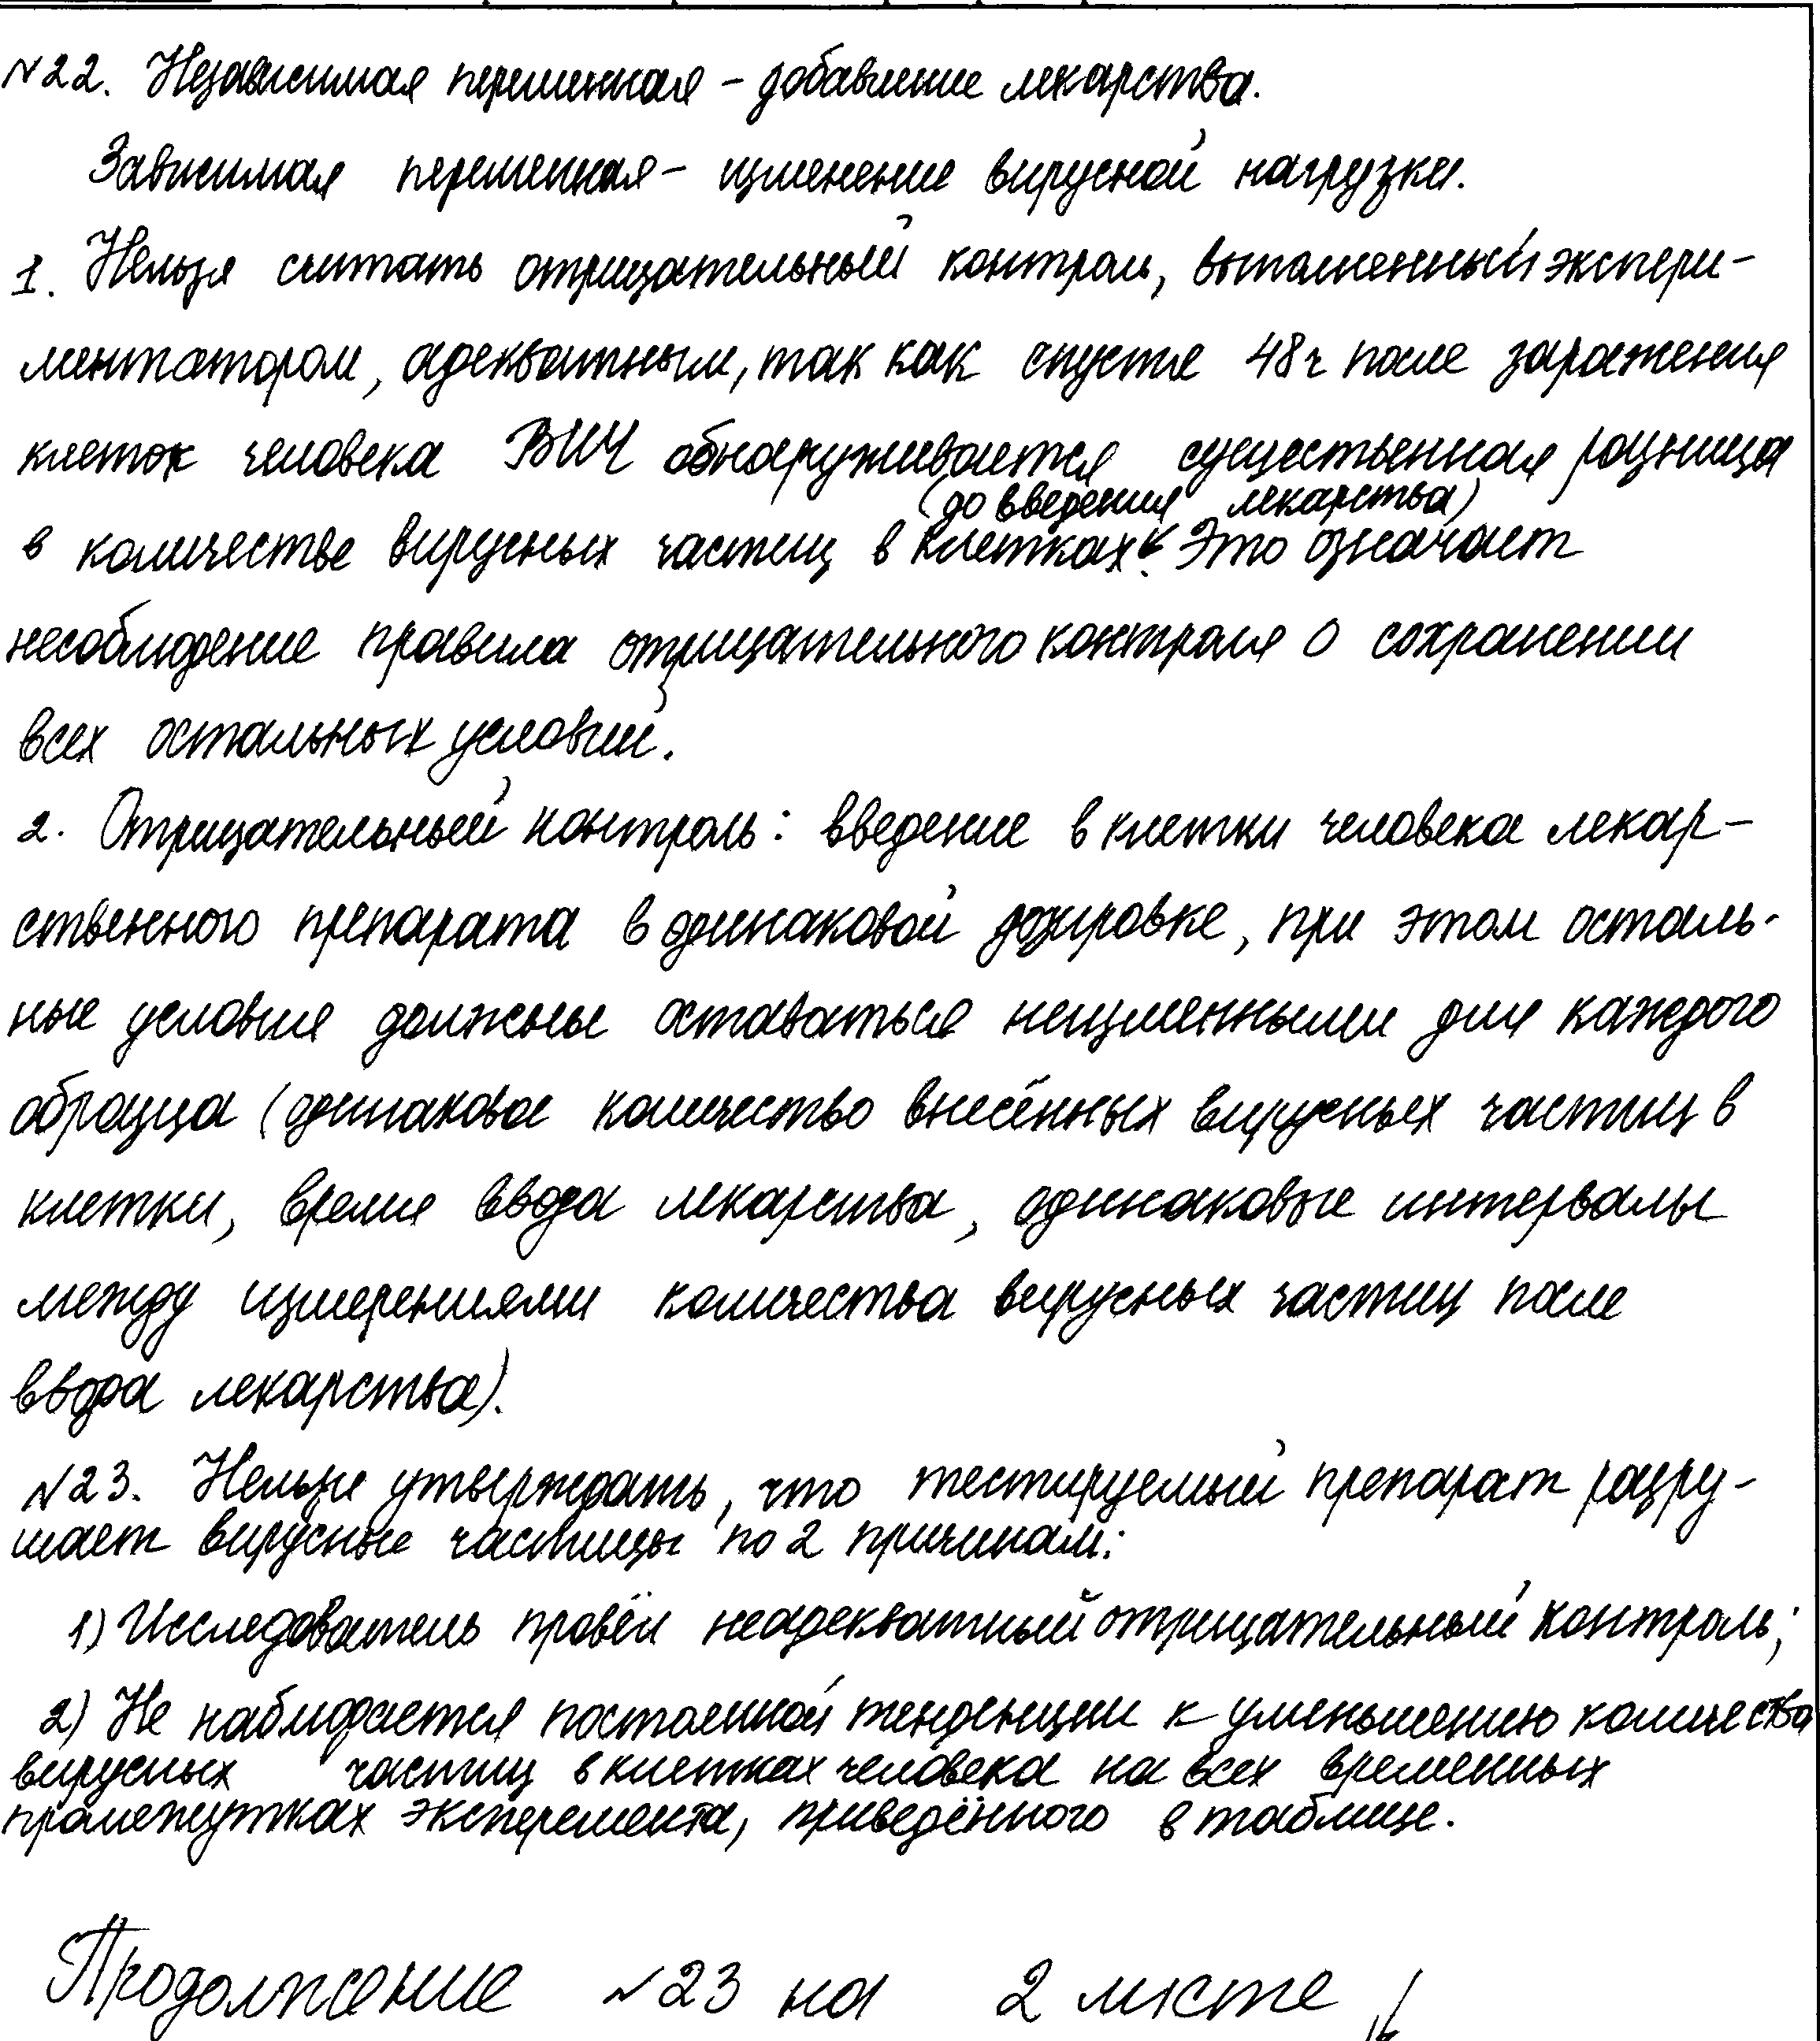 №22. Независимая переменная – добавление лекарства.
Зависимая переменная – изменение вирусной нагрузки.
1. Нельзя считать отрицательный контроль, выполненный экспери-
ментатором, адекватным, так как спустя 48ч после заражения
клеток человека ВИЧ обнаруживается существенная разница
(до введения лекарства)
в количестве вирусных частиц в клетках. Это означает
несоблюдение правила отрицательного контроля о сохранении
всех остальных условий.
2. Отрицательный контроль: введение в клетки человека лекар-
ственного препарата в одинаковой дозировке, при этом осталь-
ные условия должны оставаться неизменными для каждого
образца (одинаковое количество внесённых вирусных частиц в
клетки, время ввода лекарства, одинаковые интервалы
между измерениями количества вирусных частиц после
ввода лекарства).
№23. Нельзя утверждать, что тестируемый препарат разру-
шает вирусные частицы по 2 причинам:
1) Исследователь провёл неадекватный отрицательный контроль;
2) Не наблюдается постоянной тенденции к уменьшению количества
вирусных частиц в клетках человека на всех временных
промежутках эксперемента, приведённого в таблице.
Продолжение №23 на 2 листе